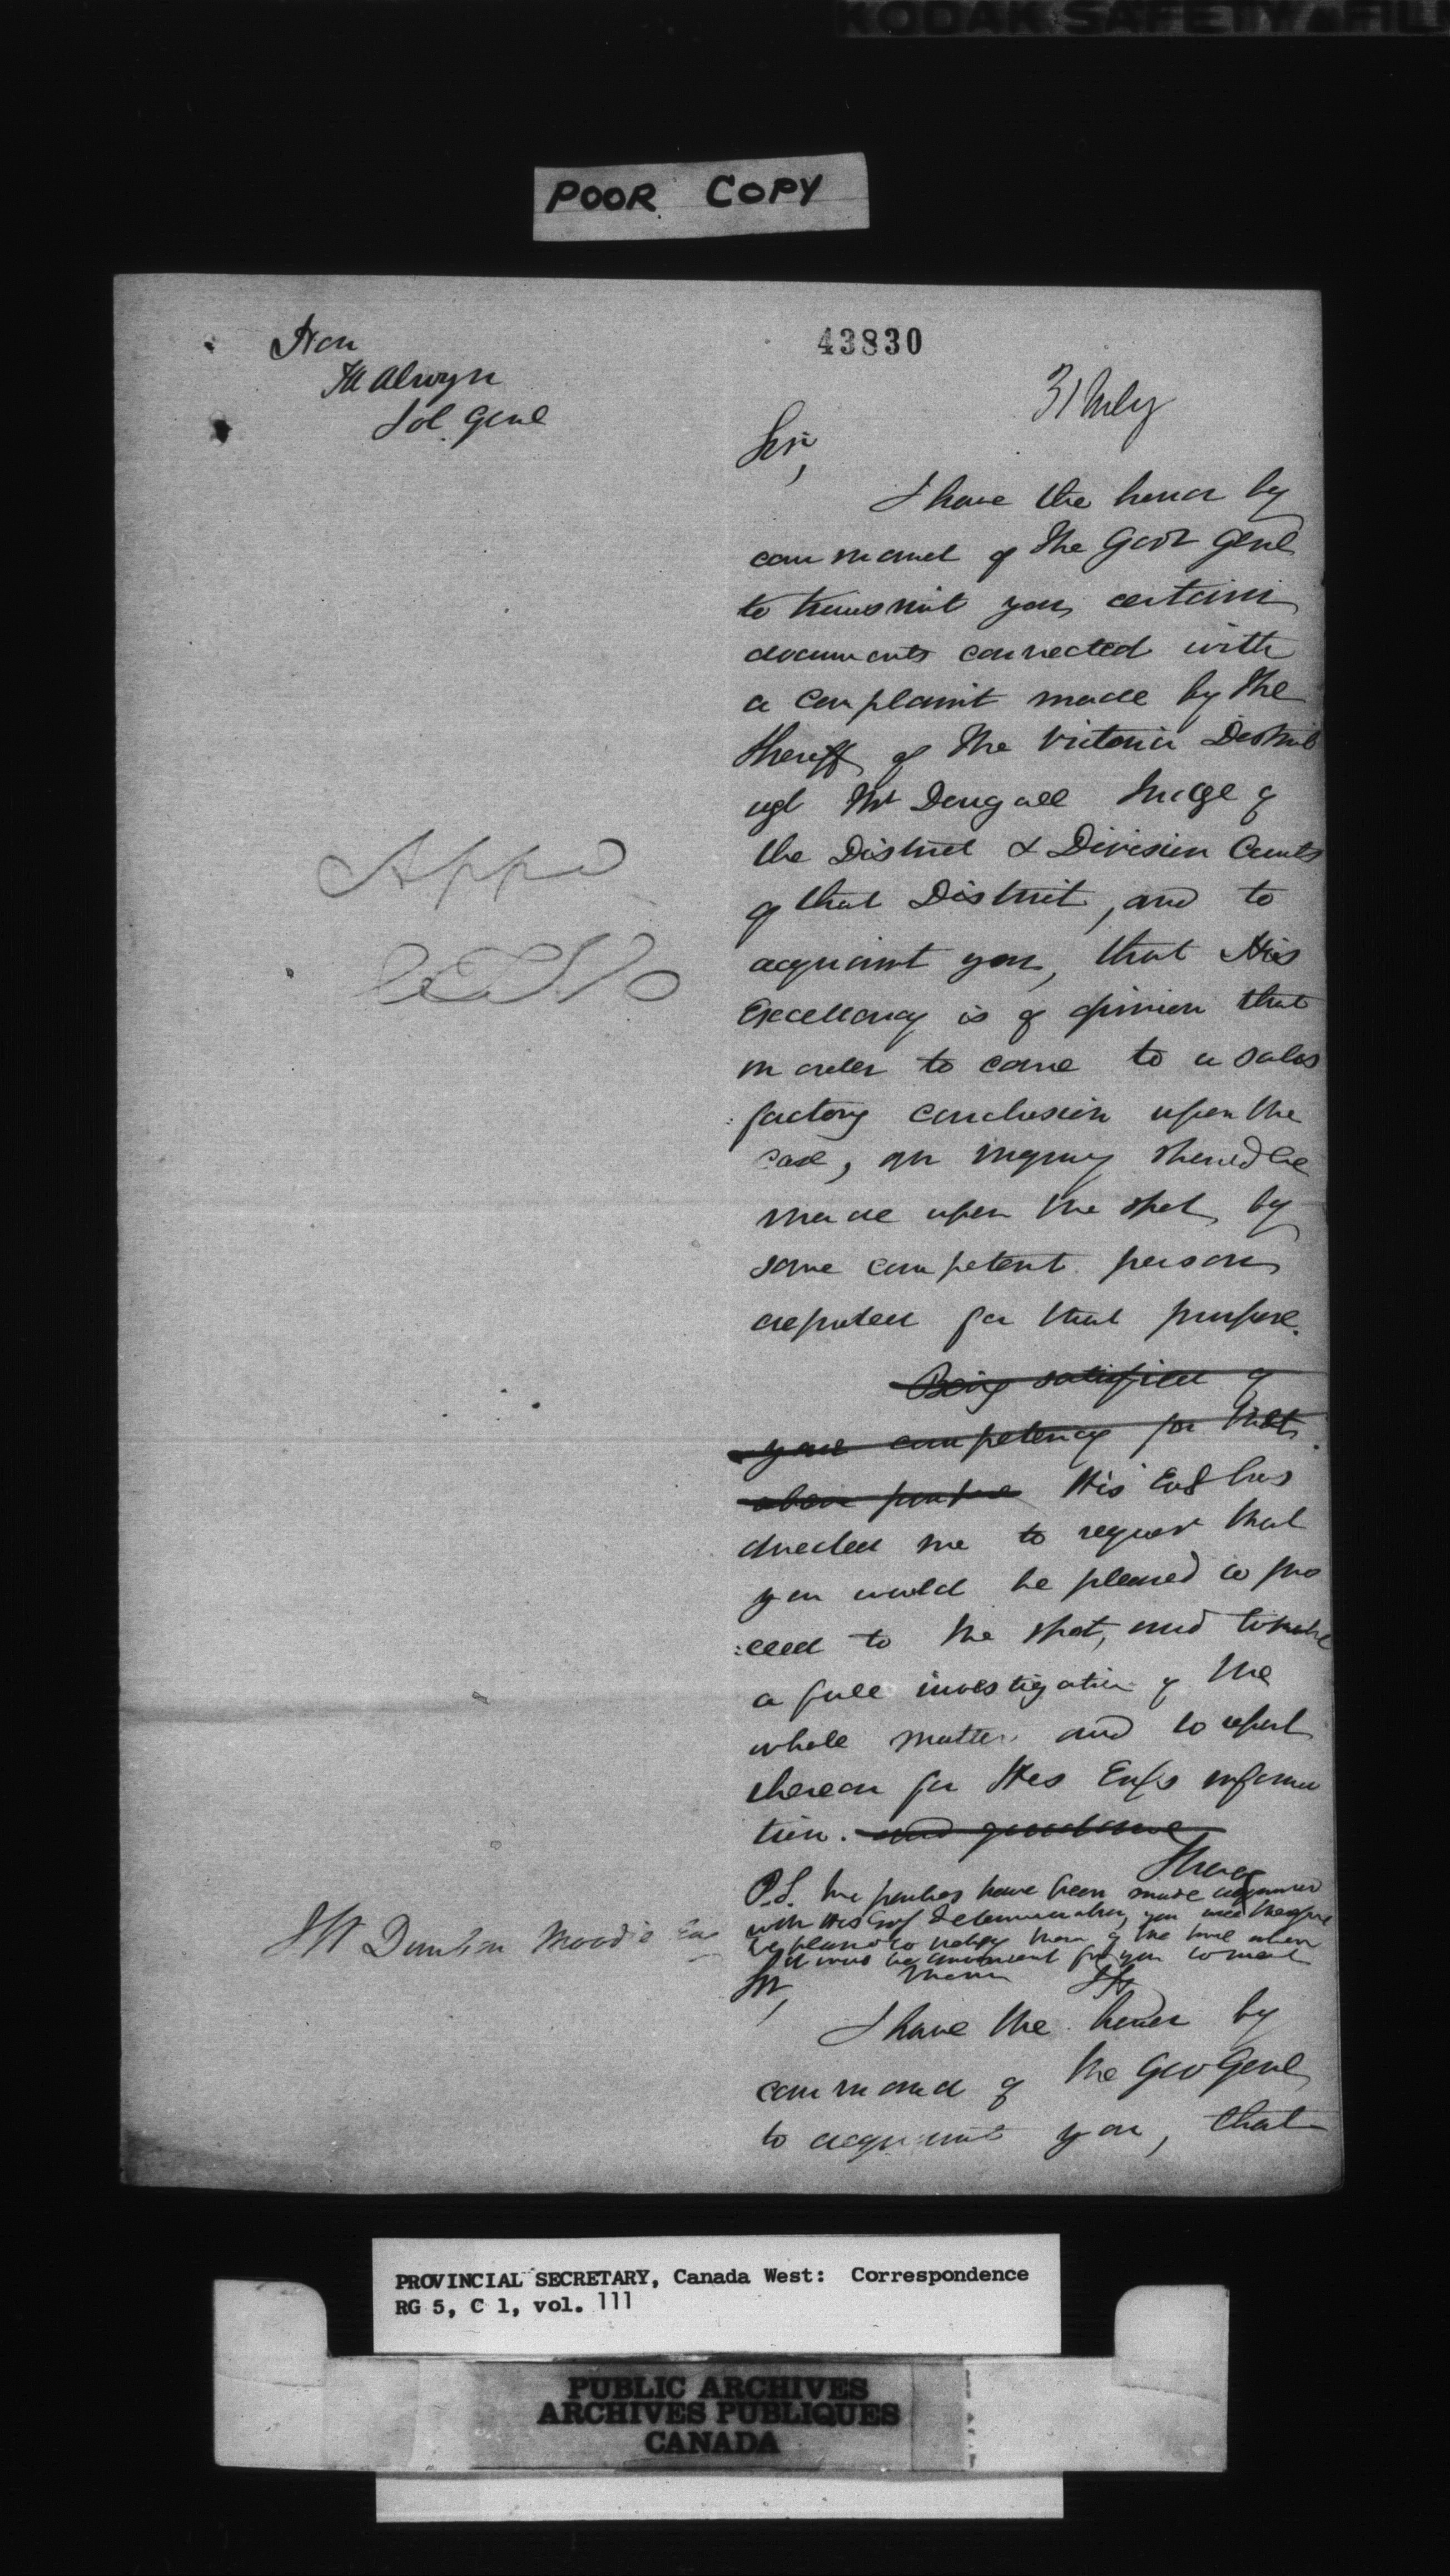 KODAK SAFETY FIL
POOR COPY
43830
Hon
Mr Alwyn
Sol. Genl
31 July
Sir,
I have the honor by
command of the Govr Genl
to transmit you certain
documents connected with
a complaint made by the
Sheriff of the Victoria District
agt Mr Dougall Judge of
the District & Division Courts
of that District, and to
acquaint you, that His
Excellency is of opinion that
in order to come to a satis
:factory conclusion upon the
case, an inquiry should be
made upon the spot by
some competent person
deputed for that purpose.
Being satisfied of
your competency for that
above purpose His Exc has
directed me to request that
you would be pleased to pro
:ceed to the spot, and to make
a full investigation of the
whole matter and to report
thereon for His Exc's informa
tion. and guidance
Appd
I have
P.S. The parties have been made acquainted
with His Exc's determination, you will therefore
be pleased to notify them of the time when
it will be convenient for you to meet
them
J W Dunbar Moodie Esq
Sir,
I have the honor by
command of the Gov Genl
to acquaint you, that
PROVINCIAL SECRETARY, Canada West: Correspondence
RG 5, C 1, vol. 111
PUBLIC ARCHIVES
ARCHIVES PUBLIQUES
CANADA